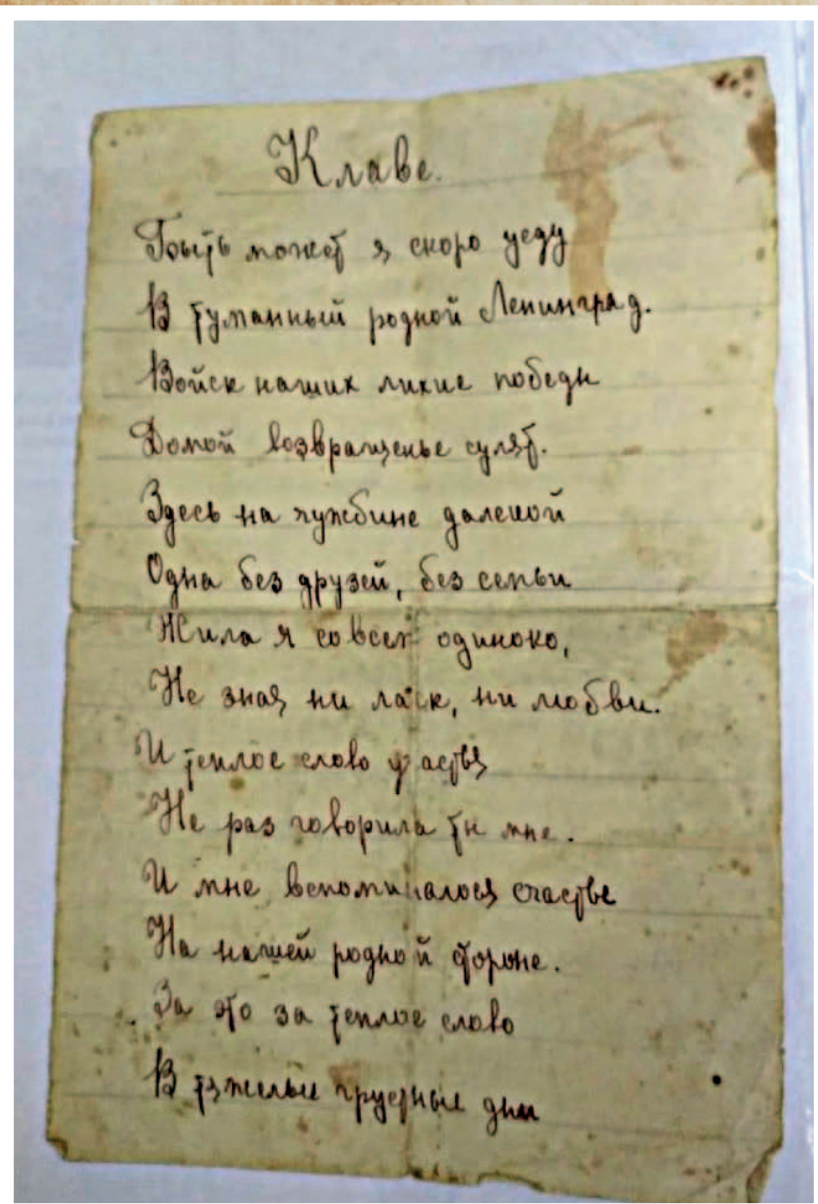 Клаве.
Быть может я скоро уеду
В туманный родной Ленинград.
Войск наших лихие победы
Домой возвращенье сулят.
Здесь на чужбине далекой
Одна без друзей, без семьи
Жила я совсем одиноко,
Не зная ни ласк, ни любви.
И теплое слово участья
Не раз говорила ты мне.
И мне вспоминалось счастье
На нашей родной стороне.
За это за теплое слово
В тяжелые грустные дни